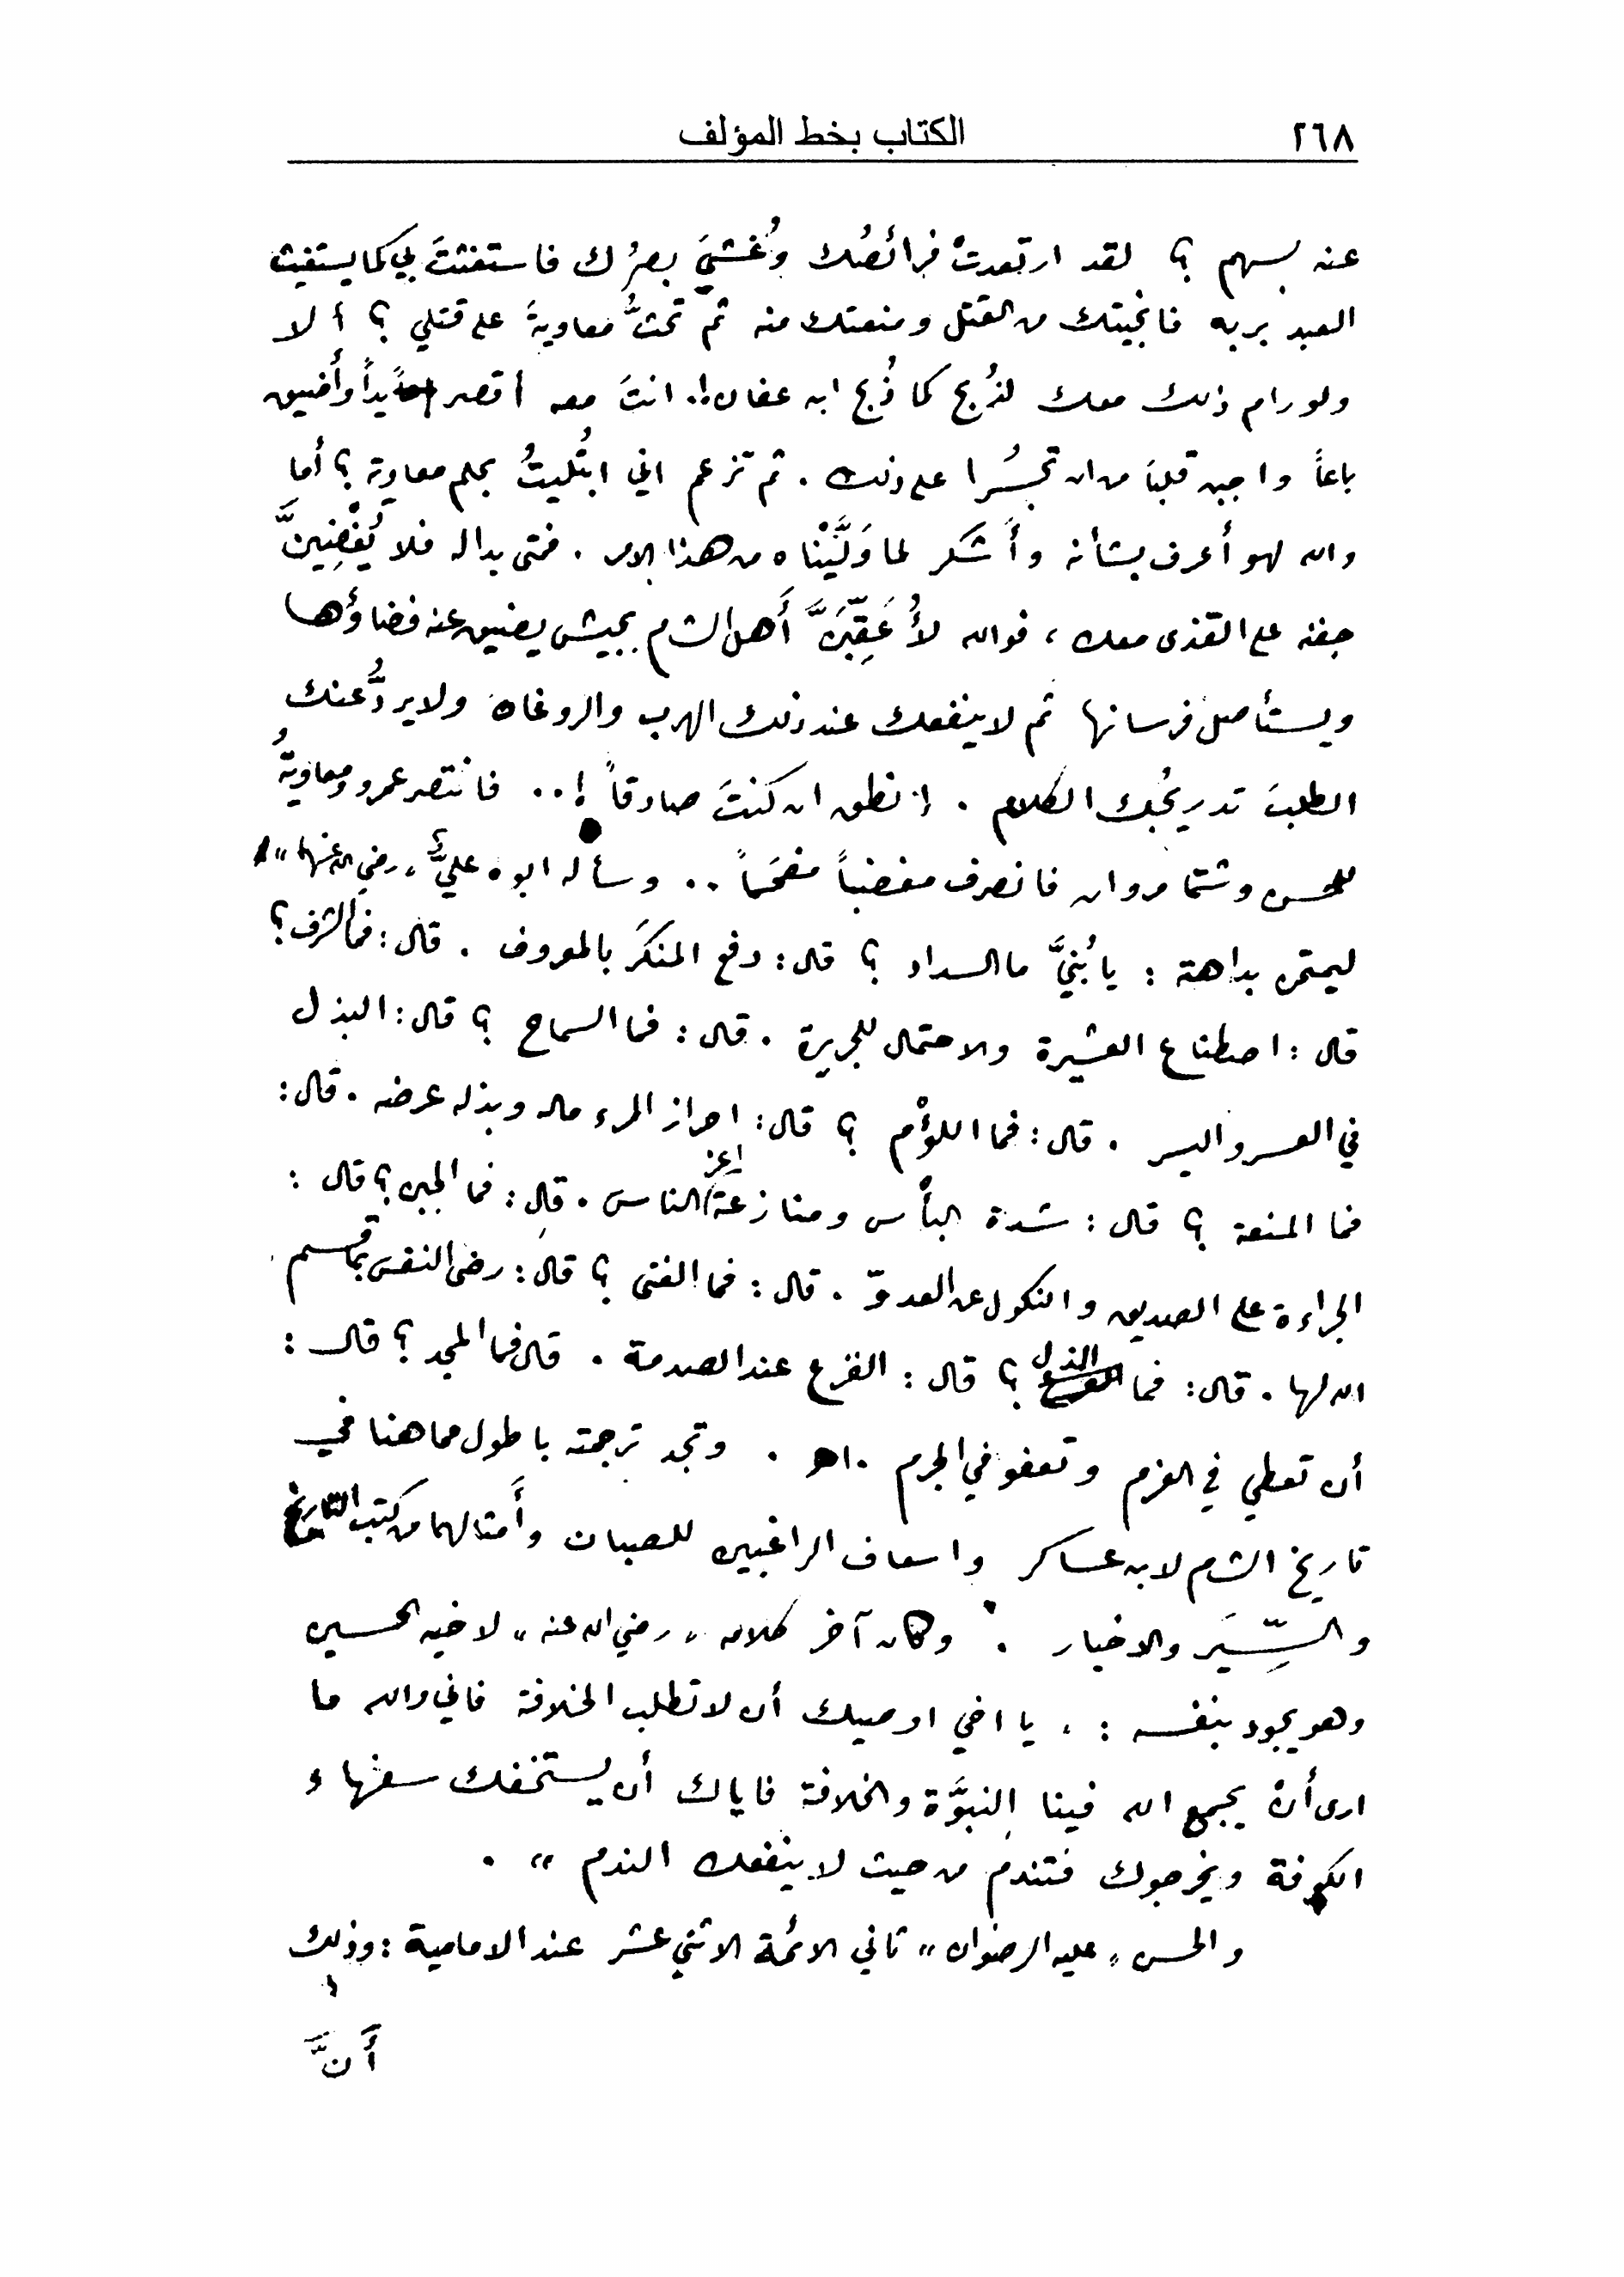 ٢٦٨
الكتاب بخط المؤلف
عنه بسهم ؟ لقد ارتعدتْ فرائصُك وغُشيَ بصرُك فاستغثتَ بي كما يستغيث
العبد بربه فانجيتك من القتل ومنعتك منه ثم تحثُّ معاويةَ على قتلي ؟ ألا
ولو رام ذلك معك لذُبح كما ذُبح ابن عفان !. انتَ معه أقصر يداً وأضيق
باعاً واجبن قلبَا من ان تجسُرا على ذلك . ثم تزعم اني ابتُليتُ بحلم معاوية ؟ أما
والله لهو أعرف بشأنه وأشكر لما وَلَّيْناه من هذا الامر . فمتى بدا له فلا يُغْضِيَنَّ
جفنه على القذى معك ، فوالله لأُعَقِّبَنَّ أَهل الشام بجيش يضيق عنه فضاؤها
ويستأصل فرسانها ثم لا ينفعك عند ذلك الهرب والروغان ولا يردُّ عنك
الطلبَ تدريجُك الكلام . إنطق ان كنتَ صادقاً !.. فانتصر عمرو ومعاويةُ
للحسن وشتما مروان فانصرف مغضباً مفحَماً .. وسأله ابوه عليٌّ ,, رضي الله عنهما ,,
ليمتحن بداهة : يا بُنيَّ ما السداد ؟ قال : دفع المنكَر بالمعروف . قال : فما الشرف ؟
قال : اصطناع العشيرة والاحتمال للجريرة . قال : فما السماح ؟ قال : البذل
في العسر واليسر . قال : فما اللؤْم ؟ قال : احراز المرء ماله وبذله عرضه . قال :
فما المنعة ؟ قال : شدة البأس ومنازعة أعز الناس . قال : فما الجبن ؟ قال :
الجراءة على الصديق والنكول عن العدوّ . قال : فما الغنى ؟ قال : رضى النفس بما قسم
الله لها . قال : فما الذل ؟ قال : الفزع عند الصدمة . قال فما المجد ؟ قال :
أن تعطي في الغرم وتعفو في الجرم . اهـ . وتجد ترجمته باطول مما هنا في
تاريخ الشام لابن عساكر واسعاف الراغبين للصبان وأَمثالهما من كتب التاريخ
والسِّيَر والاخبار . وكان آخر كلامه ,, رضي الله عنه ,, لاخيه الحسين
وهو يجود بنفسه : ,, يا اخي اوصيك أن لا تطلب الخلافة فاني والله ما
ارى أنْ يجمع الله فينا النبوَّة والخلافة فاياك أن يستخفك سفهاء
الكوفة ويخرجوك فتندم من حيث لا ينفعك الندم ,, .
والحسن ,, عليه الرضوان ,, ثاني الائمة الاثني عشر عند الامامية : وذلك
أَنَّ